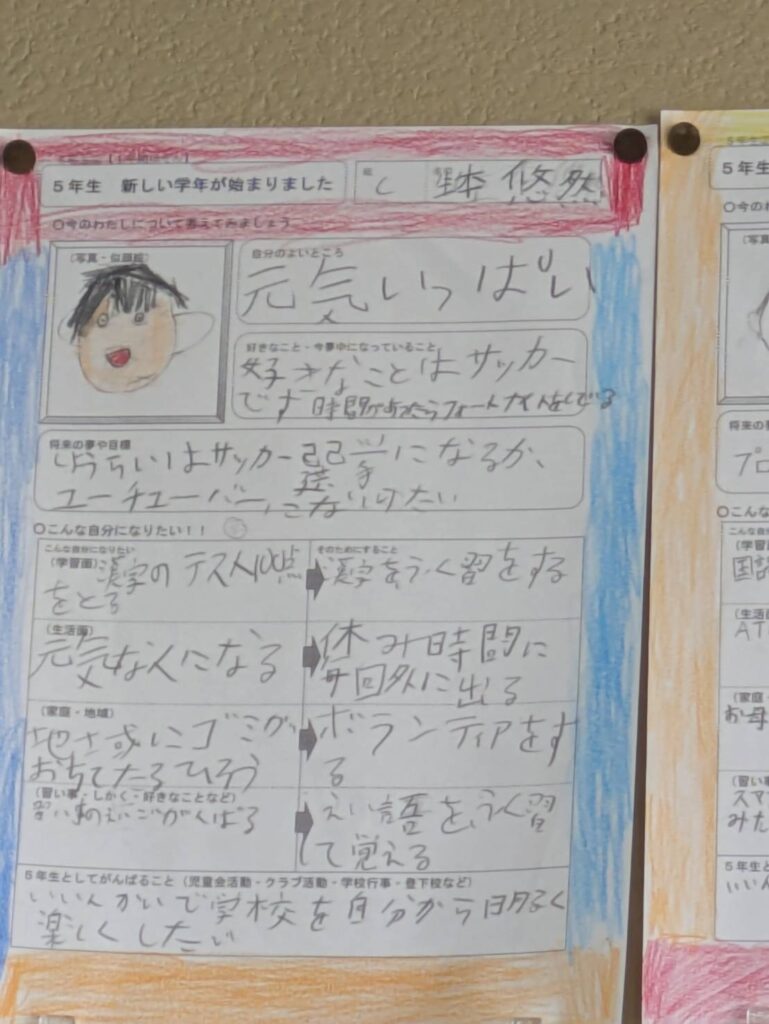 5年生 新しい学年が始まりました
悠然
○今のわたしについて考えてみましょう
(写真・似顔絵)
自分のよいところ
元気いっぱい
好きなこと・今夢中になっていること
好きなことはサッカー
です 時間があったらフォートナイトをしている
将来の夢や目標
しょうらいはサッカー選手になるか、
ユーチューバーになりたい
○こんな自分になりたい!!
こんな自分になりたい
そのためにすること
(学習面)漢字のテスト100点
をとる
漢字をふく習をする
(生活面)
元気な人になる
休み時間に
毎回外に出る
(家庭・地域)
地域にゴミが
おちてたるひろう
ボランティアをす
る
(習い事・しかく・好きなことなど)
習い事のえいごがんばる
えい語をふく習
して覚える
5年生としてがんばること(児童会活動・クラブ活動・学校行事・登下校など)
いいんかいで学校を自分から明るく
楽しくしたい
5年生
○今の
(写真
将来の
プロ
○こんな
(学習面
国語
(生活
AT
(家庭・
お母
(習い
スマ
みた
5年生と
いいん